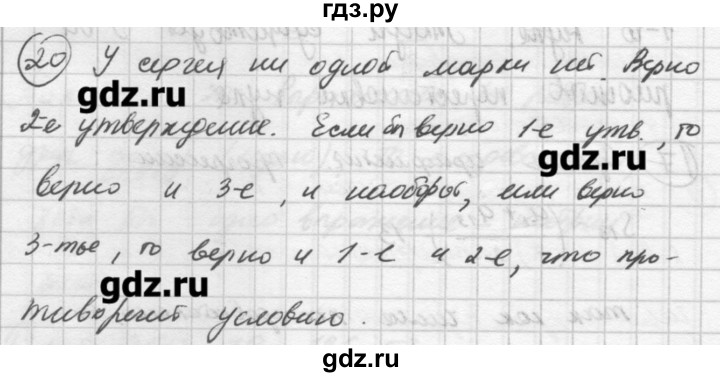 гдз.ру
20 У Сергея ни одной марки нет. Верно
gdz.ru
2-е утверждение. Если бы верно 1-е утв., то
gdz.ru
верно и 3-е, и наоборот, если верно
3-тье, то верно и 1-е и 2-е, что про-
gdz.ru
тиворечит условию.
gdz.ru